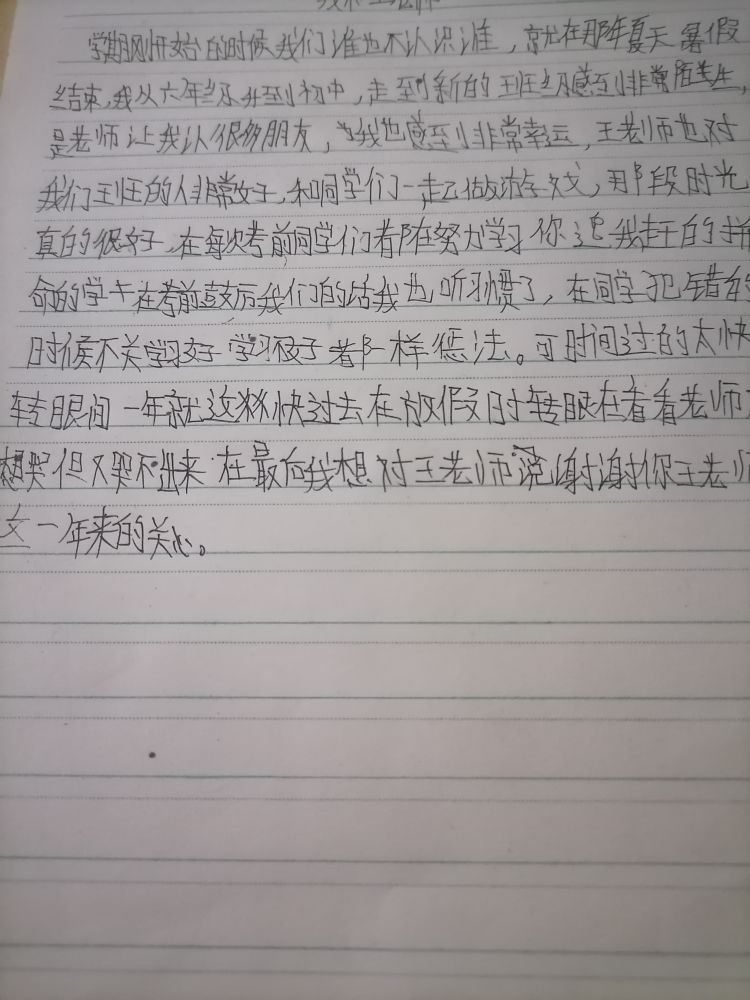 我和王老师
学期刚开始的时候我们谁也不认识谁，就在那年夏天暑假
结束，我从六年级升到初中，走到新的班级感到非常陌生，
是老师让我认很多朋友，为我也感到非常幸运，王老师也对
我们班的人非常好，和同学们一起做游戏，那段时光
真的很好，在每次考前同学们都在努力学习你追我赶的拼
命的学卡在考前鼓后我们的话我也听习惯了，在同学犯错的
时候不关学习好学习不好都一样惩法。可时间过的太快
转眼间一年就这么快过去在放假时转眼在看看老师
想哭但又哭不出来在最后我想对王老师说谢谢你王老师
这一年来的关心。